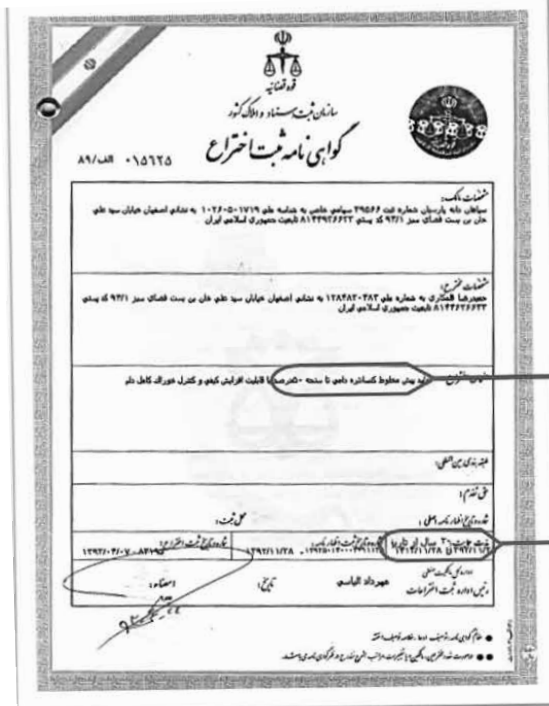 قوه قضائیه
سازمان ثبت اسناد و املاک کشور
گواهی نامه ثبت اختراع
۰۱۵۶۲۵ الف/۸۹
مشخصات مالک:
سپاهان دانه پارسیان شماره ثبت ۳۹۵۶۶ سهامی خاص به شناسه ملی ۱۰۲۶۰۵۰۱۷۱۹ به نشانی اصفهان خیابان سید علی
خان بن بست فضای سبز ۹۴/۱ کد پستی ۸۱۴۴۹۳۶۶۳۳ تابعیت جمهوری اسلامی ایران
مشخصات مخترع:
حمیدرضا قلمکاری به شماره ملی ۱۲۸۴۸۲۰۴۸۳ به نشانی اصفهان خیابان سید علی خان بن بست فضای سبز ۹۴/۱ کد پستی
تابعیت جمهوری اسلامی ایران
تولید پیش مخلوط کنسانتره دامی تا سطح ۵۰درصد با قابلیت افزایش کیفی و کنترل خوراک کامل دام
طبقه بندی بین المللی:
حق تقدم:
شماره و تاریخ اظهارنامه اصلی:
محل ثبت:
مدت حمایت: ۲۰ سال از تاریخ
تا ۱۴۱۲/۱۱/۲۸
شماره و تاریخ ثبت اظهارنامه:
۱۳۹۲/۱۱/۲۸
شماره و تاریخ ثبت اختراع:
اداره کل مالکیت صنعتی
رئیس اداره ثبت اختراعات
مهرداد الیاسی
تاریخ:
امضاء: